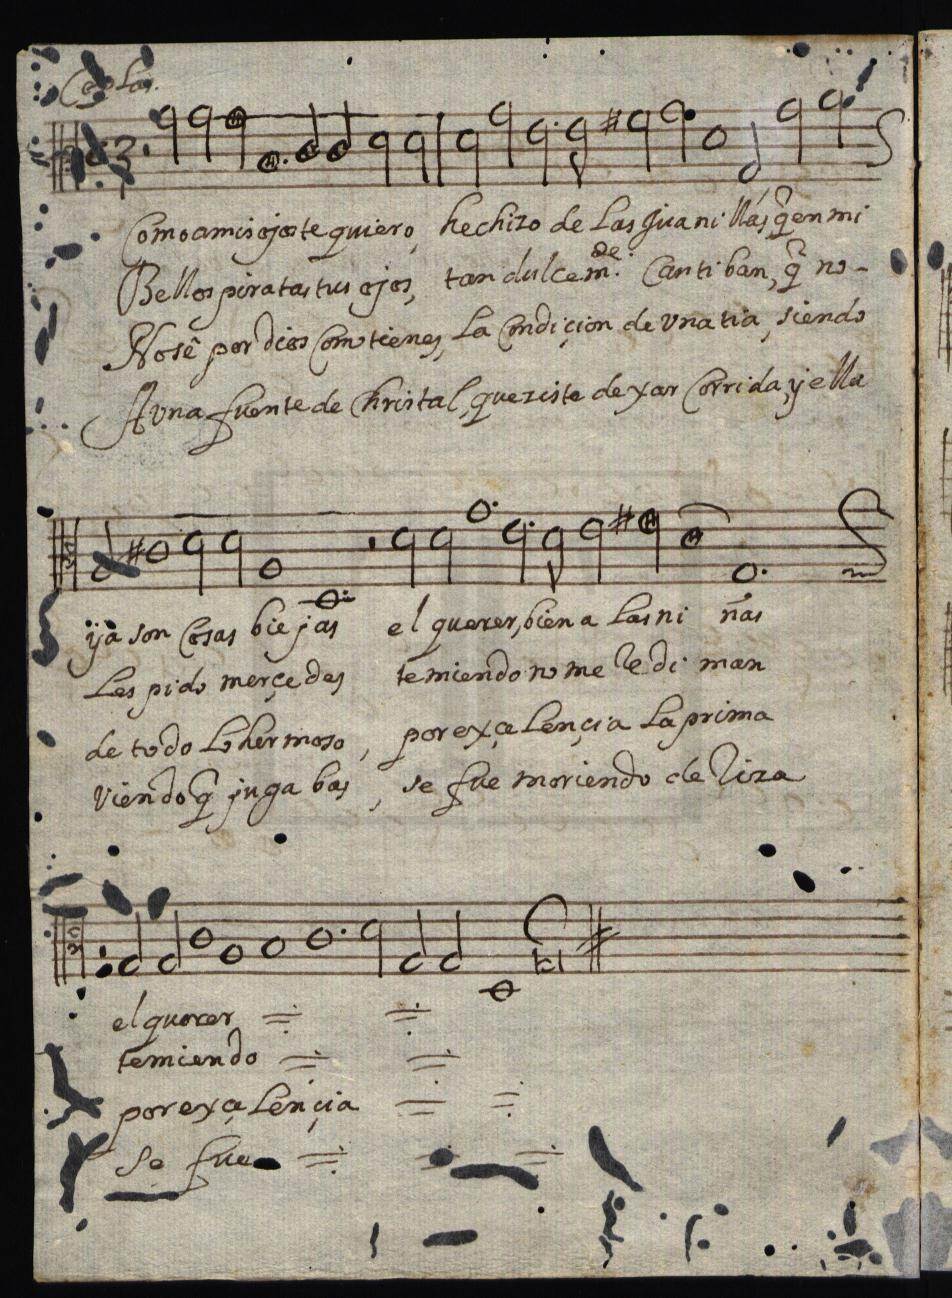 Coplas.
Como a mis ojos te quiero, hechizo de las Juanillas, q̃ en mi
Bellos piratas tus ojos, tan dulcem.de cautiban, q̃ no-
No sê por dios como tienes, la condiçion de vna tia, siendo
A vna fuente de Christal, queziste dexar corrida, y ella
ÿa son cosas biejas el querer, bien a las ni ñas
les pido merçedes temiendo no me le di man
de todo lo hermoso, por exçelençia la prima
viendo q̃ jugabas, se fue moriendo de Riza
el querer
temiendo
por exçelençia
Se fue